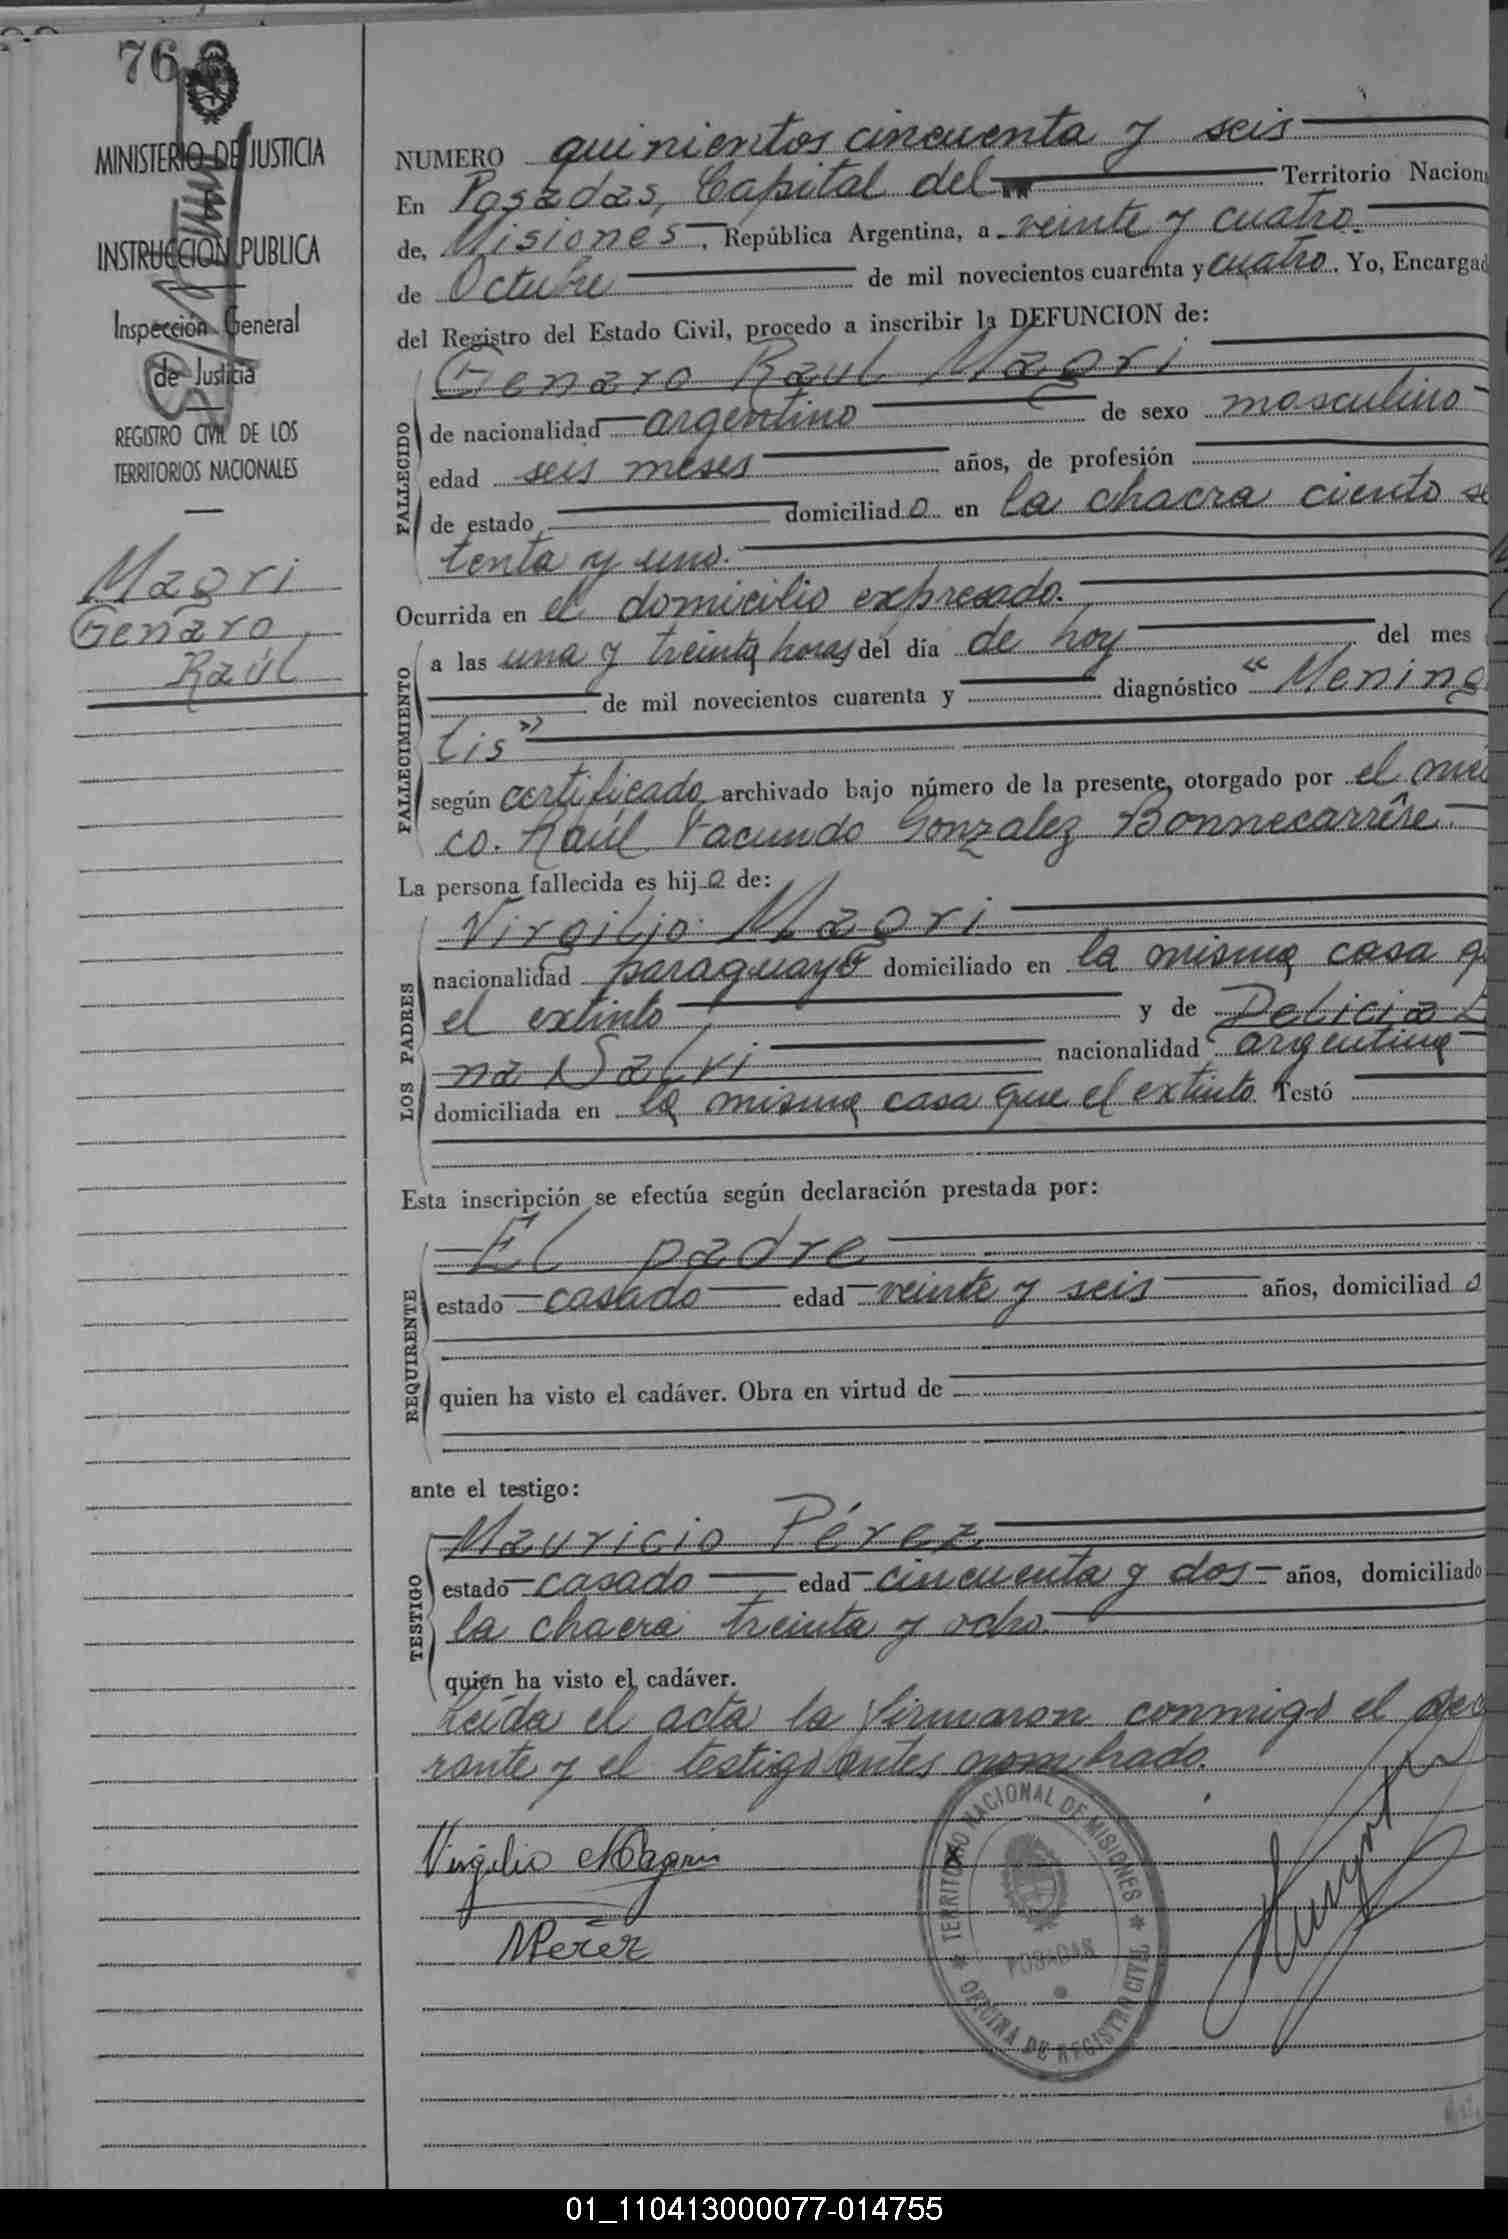 76
MINISTERIO DE JUSTICIA
INSTRUCCION PUBLICA
Inspección General
de Justicia
REGISTRO CIVIL DE LOS
TERRITORIOS NACIONALES
Magri
Genaro
Raúl
NUMERO quinientos cincuenta y seis
En Posadas, Capital del Territorio Nacion
de, Misiones, República Argentina, a veinte y cuatro
de Octubre de mil novecientos cuarenta y cuatro. Yo, Encargad
del Registro del Estado Civil, procedo a inscribir la DEFUNCION de:
Genaro Raul Magri
FALLECIDO
de nacionalidad argentino de sexo masculino
edad seis meses años, de profesión
de estado domiciliado en la chacra ciento se
tenta y uno.
Ocurrida en el domicilio expresado.
FALLECIMIENTO
a las una y treinta horas del día de hoy del mes
de mil novecientos cuarenta y diagnóstico "Mening
tis"
según certificado archivado bajo número de la presente, otorgado por el mé
co. Raúl Facundo Gonzalez Bonnecarrêre.
La persona fallecida es hijo de:
LOS PADRES
Virgilio Magri
nacionalidad paraguayo domiciliado en la misma casa q
el extinto y de Delicia
na Salvi nacionalidad argentina
domiciliada en la misma casa que el extinto. Testó
Esta inscripción se efectúa según declaración prestada por:
REQUIRENTE
El padre
estado casado edad veinte y seis años, domiciliado
quien ha visto el cadáver. Obra en virtud de
ante el testigo:
TESTIGO
Mauricio Pérez
estado casado edad cincuenta y dos años, domiciliado
la chacra treinta y ocho.
quien ha visto el cadáver.
Leída el acta la firmaron conmigo el dec
rante y el testigo antes nombrado.
Virgilio Magri
MPerez
TERRITORIO NACIONAL DE MISIONES
POSADAS
OFICINA DE REGISTRO CIVIL
01_110413000077-014755